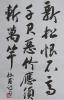 新松恨不高
千尺惡竹應須
斬萬竿